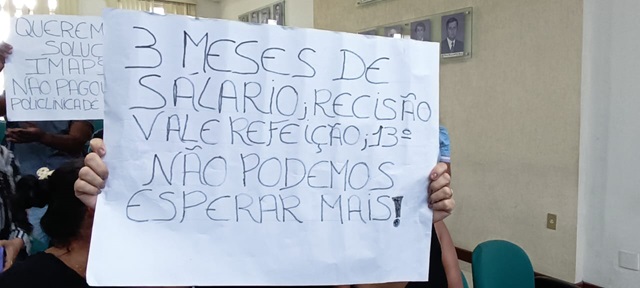 QUEREM
SOLUC
IMAPS
NÃO PAGOU
POLICLINICA DE
3 MESES DE
SÁLARIO; RECISÃO
VALE REFEIÇÃO; 13º
NÃO PODEMOS
ESPERAR MAIS!